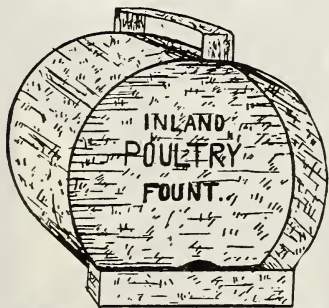 INLAND
POULTRY
FOUNT.